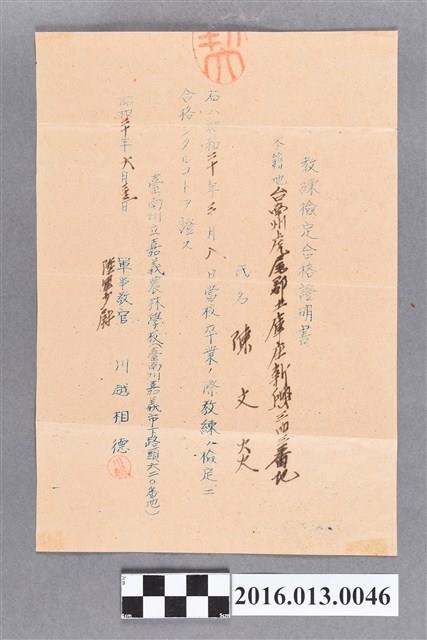 教練檢定合格證明書
本籍地 台南州虎尾郡土庫庄新興三四三番地
氏名 陳文
右ハ昭和二十年三月八日當校卒業ノ際教練ノ檢定ニ
合格シタルコトヲ證ス
昭和二十年六月 日
臺南州立嘉義農林學校(臺南州嘉義市下路頭六二〇番地)
軍事教官 川越相德
陸軍少尉
cm
6cm
2016.013.0046